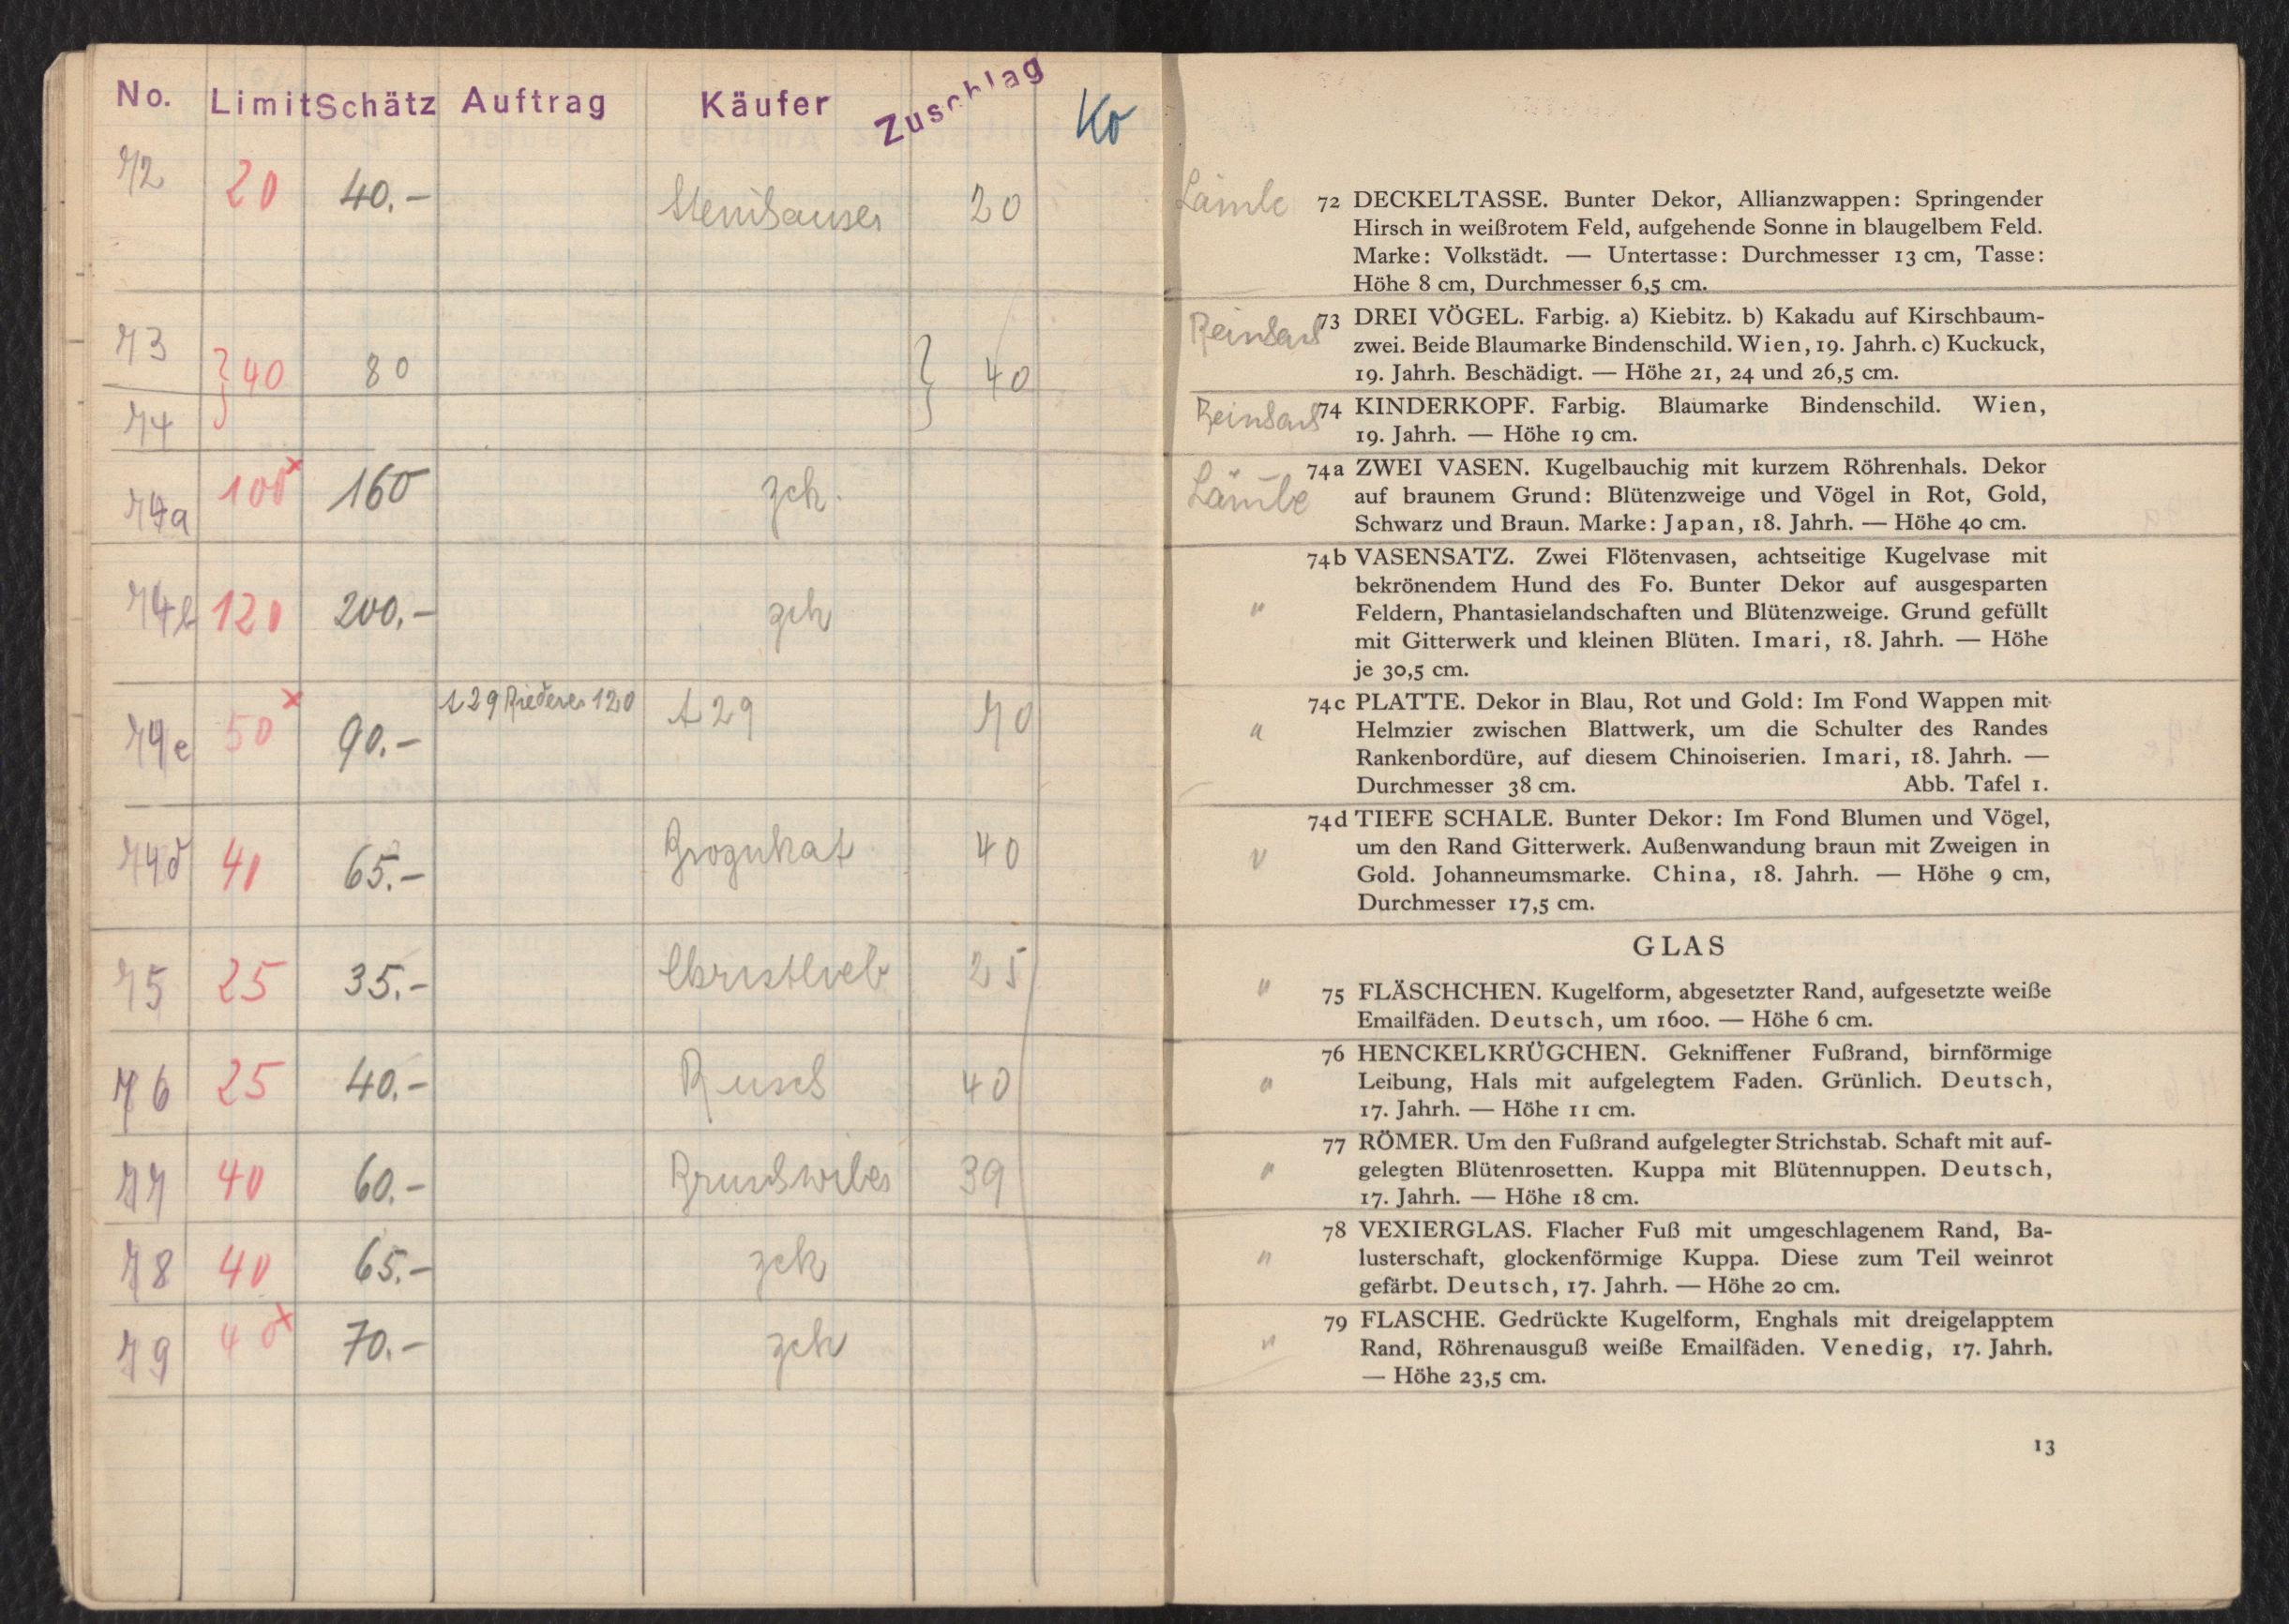 No. Limit Schätz Auftrag Käufer Zuschlag Ko
72 20 40.- Steinhauser 20
73 } 40 80 } 40
74
74a 100x 160 zck.
74b 120 200.- zck
74c 50x 90.- t29 Riederer 120 t29 70
74d 40 65.- 40
75 25 35.- Christlieb 25
76 25 40.- Rusch 40
77 40 60.- Bruschwiler 39
78 40 65.- zck
79 40x 70.- zck
Lämle 72 DECKELTASSE. Bunter Dekor, Allianzwappen: Springender
Hirsch in weißrotem Feld, aufgehende Sonne in blaugelbem Feld.
Marke: Volkstädt. — Untertasse: Durchmesser 13 cm, Tasse:
Höhe 8 cm, Durchmesser 6,5 cm.
73 DREI VÖGEL. Farbig. a) Kiebitz. b) Kakadu auf Kirschbaum-
zwei. Beide Blaumarke Bindenschild. Wien, 19. Jahrh. c) Kuckuck,
19. Jahrh. Beschädigt. — Höhe 21, 24 und 26,5 cm.
74 KINDERKOPF. Farbig. Blaumarke Bindenschild. Wien,
19. Jahrh. — Höhe 19 cm.
Lämle 74a ZWEI VASEN. Kugelbauchig mit kurzem Röhrenhals. Dekor
auf braunem Grund: Blütenzweige und Vögel in Rot, Gold,
Schwarz und Braun. Marke: Japan, 18. Jahrh. — Höhe 40 cm.
74b VASENSATZ. Zwei Flötenvasen, achtseitige Kugelvase mit
bekrönendem Hund des Fo. Bunter Dekor auf ausgesparten
" Feldern, Phantasielandschaften und Blütenzweige. Grund gefüllt
mit Gitterwerk und kleinen Blüten. Imari, 18. Jahrh. — Höhe
je 30,5 cm.
74c PLATTE. Dekor in Blau, Rot und Gold: Im Fond Wappen mit
" Helmzier zwischen Blattwerk, um die Schulter des Randes
Rankenbordüre, auf diesem Chinoiserien. Imari, 18. Jahrh. —
Durchmesser 38 cm. Abb. Tafel 1.
74d TIEFE SCHALE. Bunter Dekor: Im Fond Blumen und Vögel,
" um den Rand Gitterwerk. Außenwandung braun mit Zweigen in
Gold. Johanneumsmarke. China, 18. Jahrh. — Höhe 9 cm,
Durchmesser 17,5 cm.
GLAS
" 75 FLÄSCHCHEN. Kugelform, abgesetzter Rand, aufgesetzte weiße
Emailfäden. Deutsch, um 1600. — Höhe 6 cm.
76 HENCKELKRÜGCHEN. Gekniffener Fußrand, birnförmige
" Leibung, Hals mit aufgelegtem Faden. Grünlich. Deutsch,
17. Jahrh. — Höhe 11 cm.
77 RÖMER. Um den Fußrand aufgelegter Strichstab. Schaft mit auf-
" gelegten Blütenrosetten. Kuppa mit Blütennuppen. Deutsch,
17. Jahrh. — Höhe 18 cm.
78 VEXIERGLAS. Flacher Fuß mit umgeschlagenem Rand, Ba-
" lusterschaft, glockenförmige Kuppa. Diese zum Teil weinrot
gefärbt. Deutsch, 17. Jahrh. — Höhe 20 cm.
79 FLASCHE. Gedrückte Kugelform, Enghals mit dreigelapptem
" Rand, Röhrenausguß weiße Emailfäden. Venedig, 17. Jahrh.
— Höhe 23,5 cm.
13